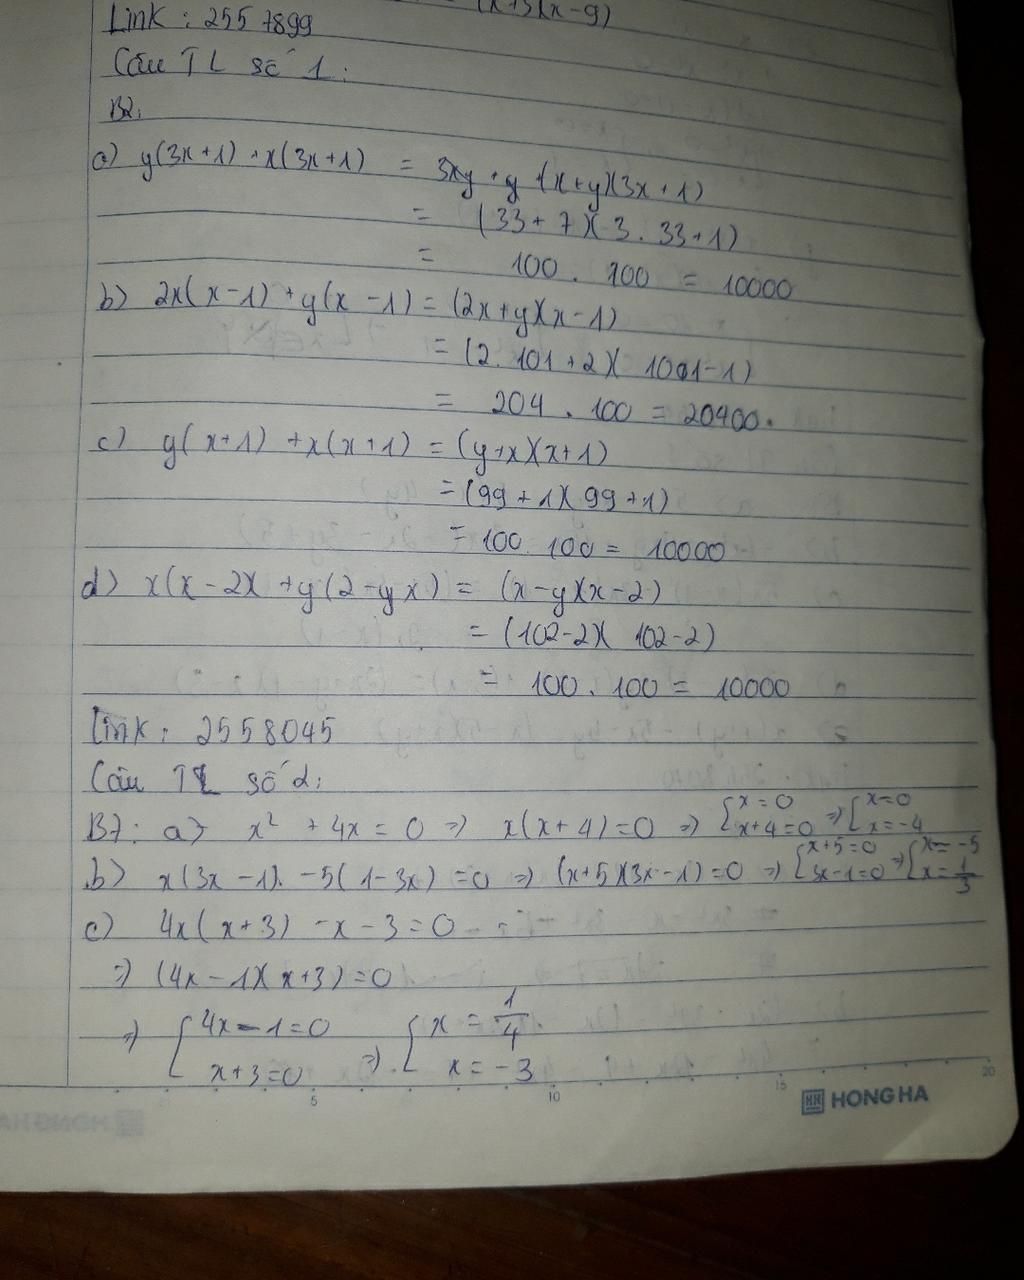 = (x+3)(x-9)
Link: 2557899
Câu TL số 1:
B2:
a) y(3x+1)+x(3x+1) = 3xy+y (x+y)(3x+1)
= (33+7)(3.33+1)
= 100.100 = 10000
b) 2x(x-1)+y(x-1)=(2x+y)(x-1)
= (2.101+2)(1001-1)
= 204.100=20400.
c) y(x+1)+x(x+1)=(y+x)(x+1)
=(99+1)(99+1)
= 100.100= 10000
d) x(x-2)+y(2-yx) = (x-y)(x-2)
= (102-2)(102-2)
= 100.100= 10000
Link: 2558045
Câu TL số 2:
B7: a) x² +4x=0 => x(x+4)=0 => { x=0 x+4=0 => { x=0 x=-4
b) x(3x-1).-5(1-3x)=0 => (x+5)(3x-1)=0 => { x+5=0 3x-1=0 => { x=-5 x=1/3
c) 4x(x+3)-x-3=0
=> (4x-1)(x+3)=0
=> { 4x-1=0 x+3=0 => { x=1/4 x=-3
5 10 15 20
HONG HA